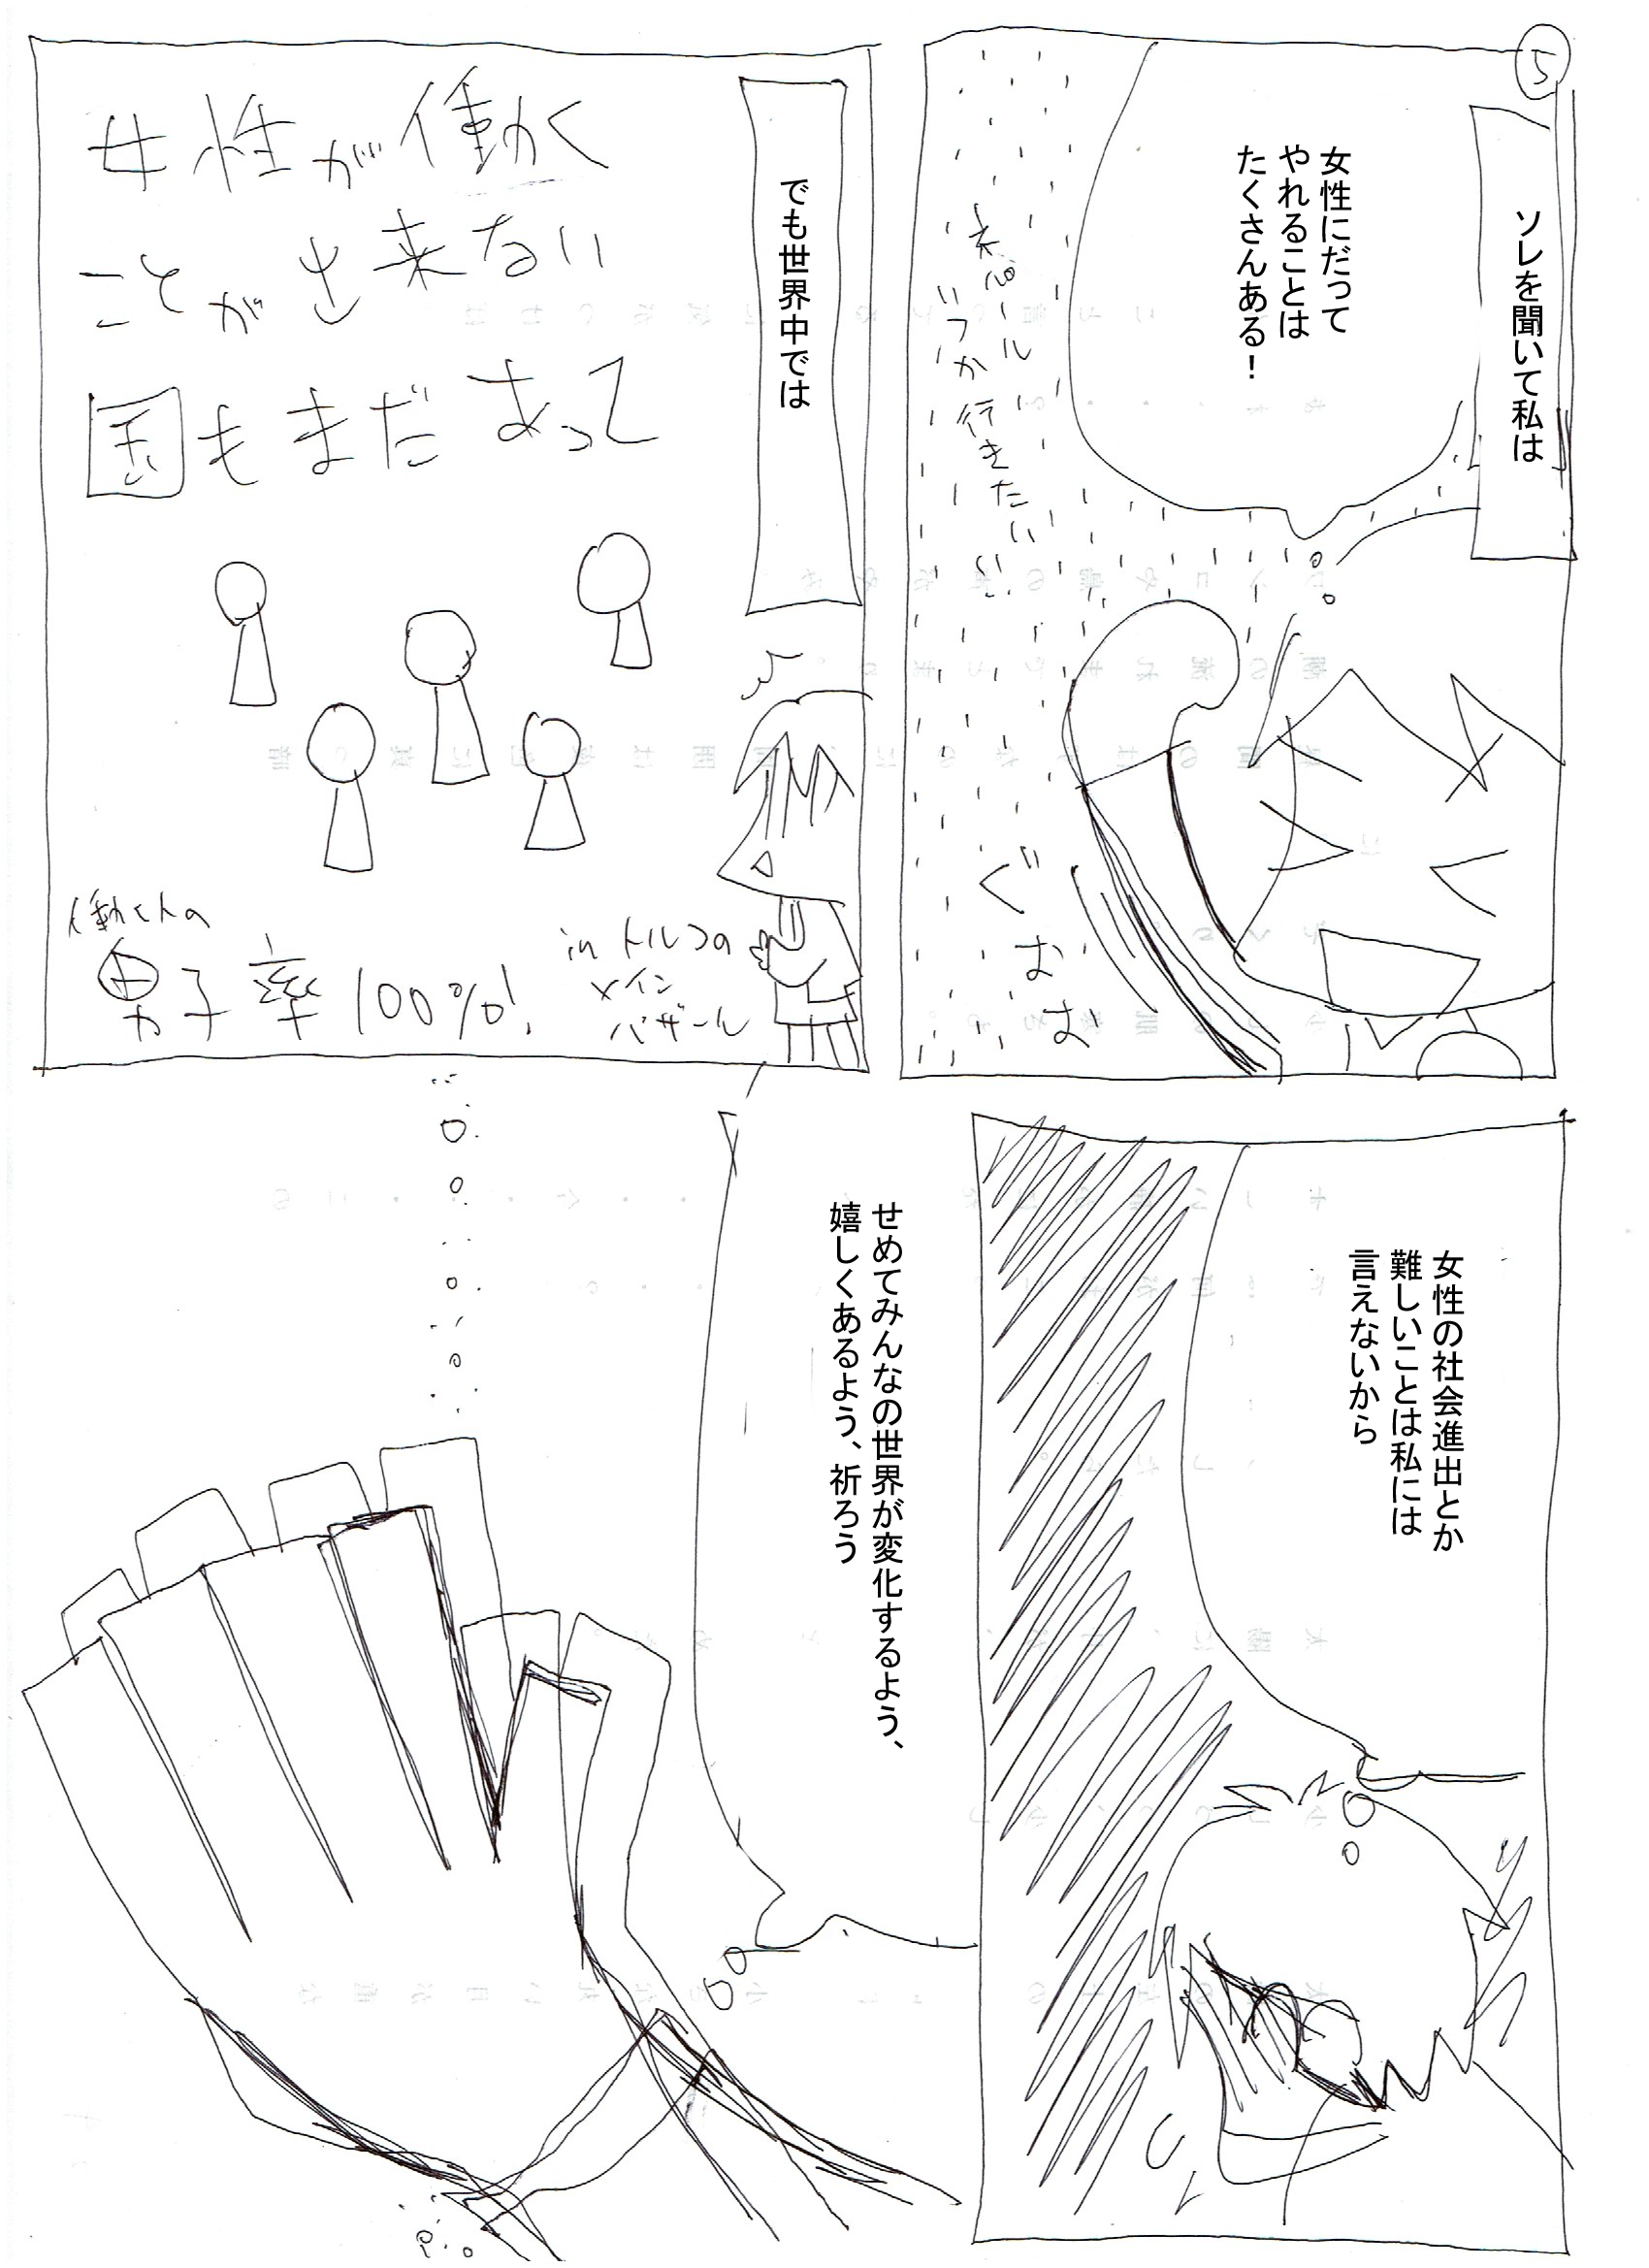 5
ソレを聞いて私は
女性にだって
やれることは
たくさんある！
ネパール
いつか行きたい
ぐおおは
でも世界中では
女性が働く
ことが出来ない
国もまだあって
働く人の
男子率100%!
in トルコの
メイン
バザール
女性の社会進出とか
難しいことは私には
言えないから
せめてみんなの世界が変化するよう、
嬉しくあるよう、祈ろう